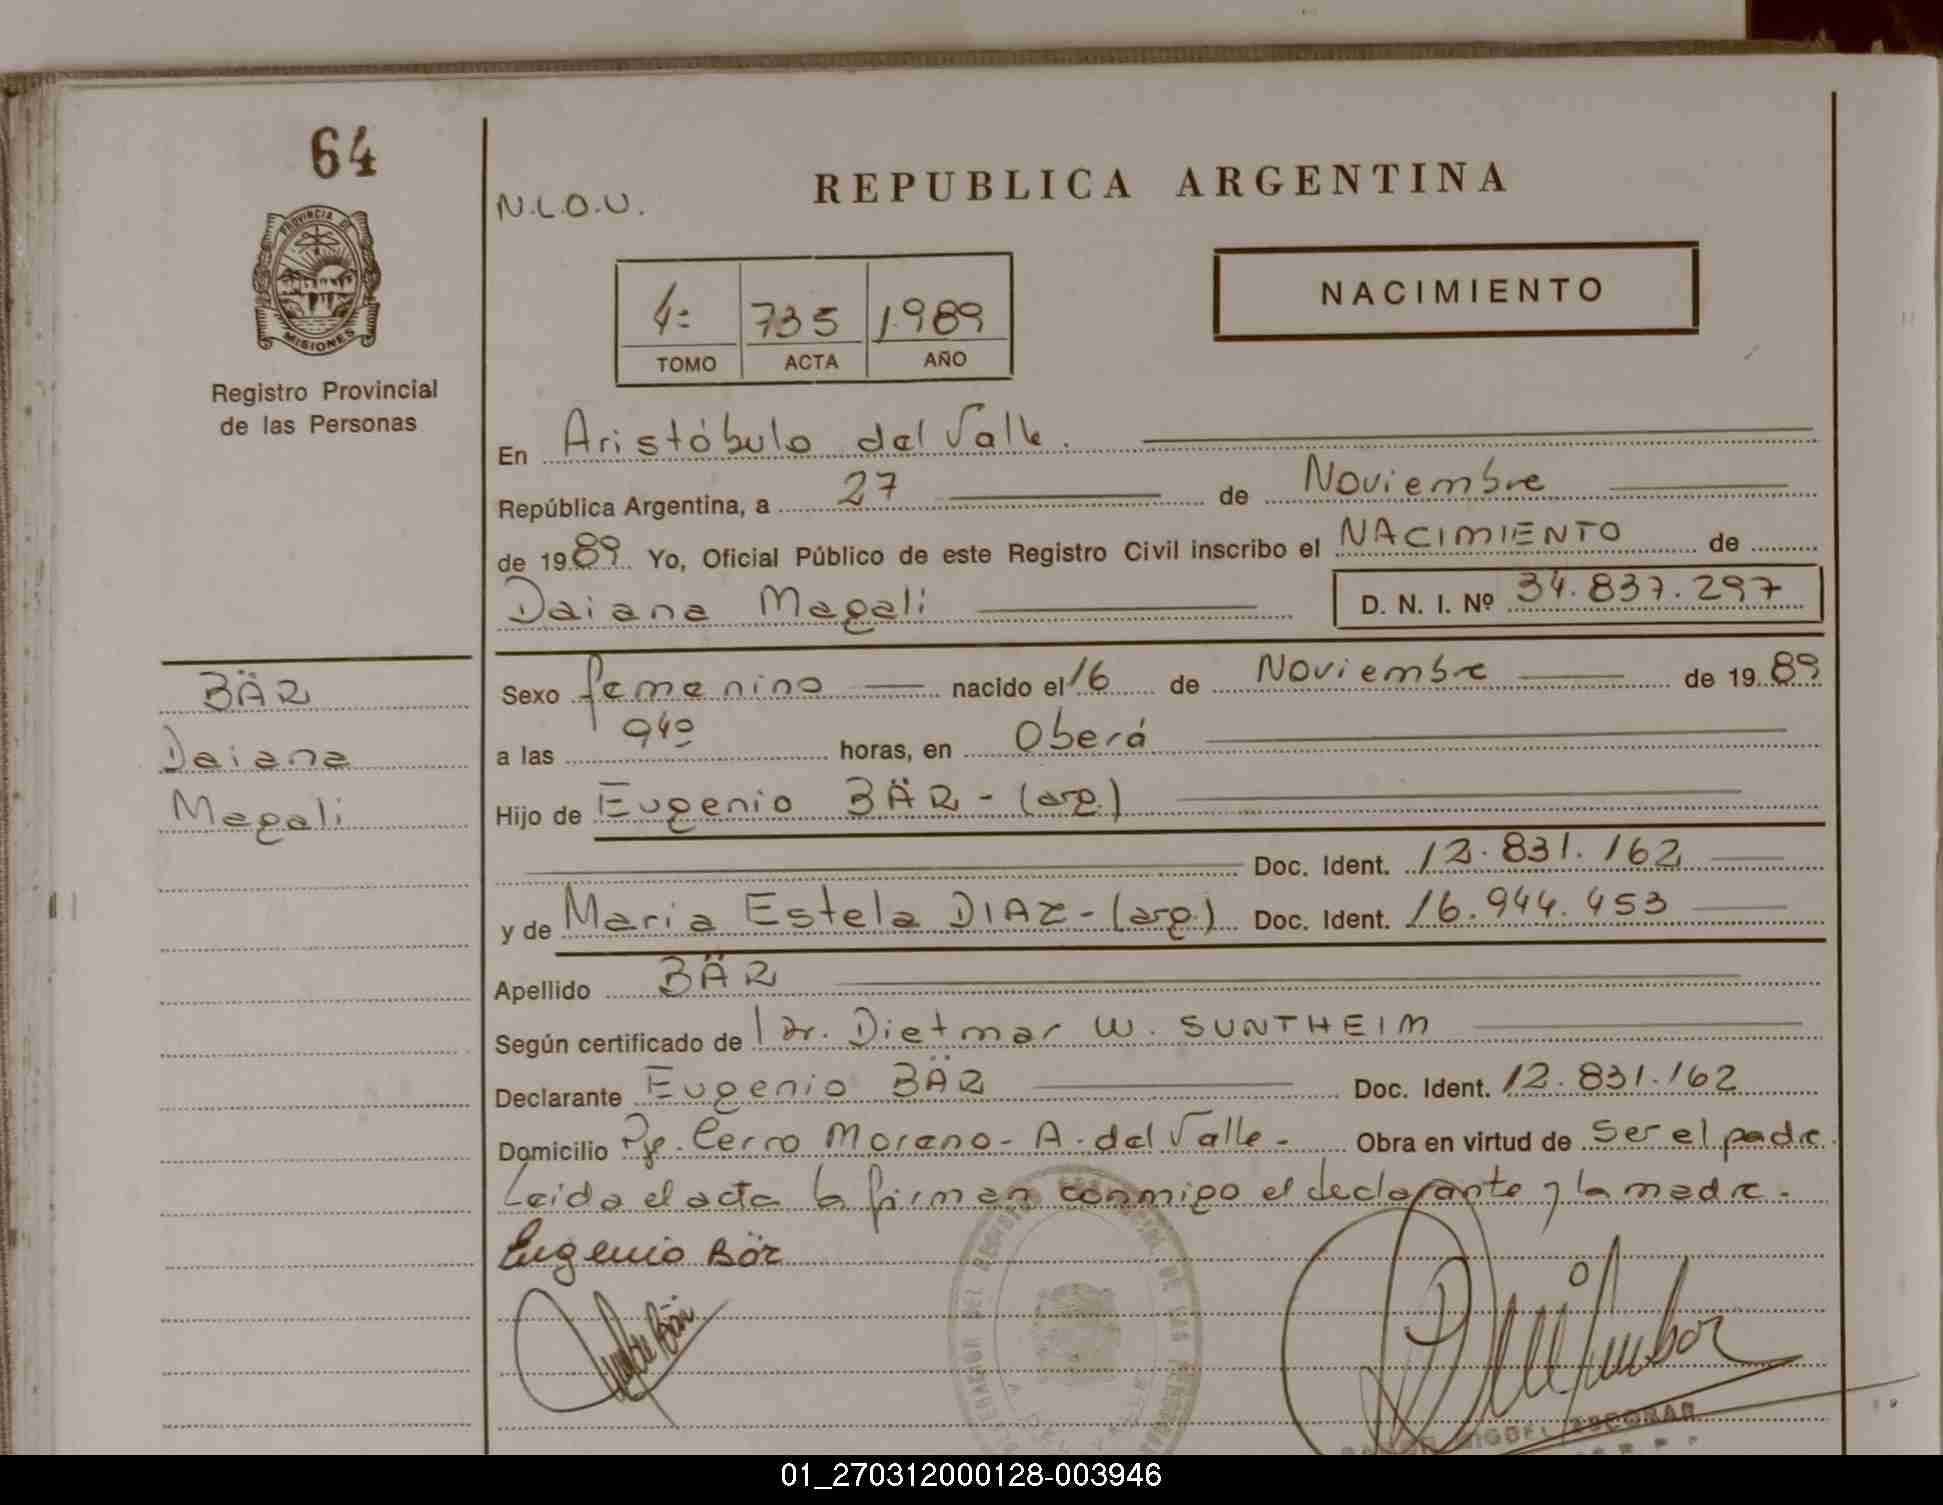 64
PROVINCIA DE
MISIONES
Registro Provincial
de las Personas
BÄR
Daiana
Magali
N.L.O.U.
REPUBLICA ARGENTINA
4= 735 1.989
TOMO ACTA AÑO
NACIMIENTO
En Aristóbulo del Valle.
República Argentina, a 27 de Noviembre
de 1989 Yo, Oficial Público de este Registro Civil inscribo el NACIMIENTO de
Daiana Magali D. N. I. Nº 34.837.297
Sexo femenino nacido el 16 de Noviembre de 1989
a las 940 horas, en Oberá
Hijo de Eugenio BÄR - (arg.)
Doc. Ident. 12.831.162
y de Maria Estela DIAZ - (arg.) Doc. Ident. 16.944.453
Apellido BÄR
Según certificado de Dr. Dietmar W. SUNTHEIM
Declarante Eugenio BÄR Doc. Ident. 12.831.162
Domicilio Pje. Cerro Moreno - A. del Valle - Obra en virtud de Ser el padre.
Leida el acta la firman conmigo el declarante y la madre.
Eugenio Bär
MIGUEL ESCOBAR
01_270312000128-003946